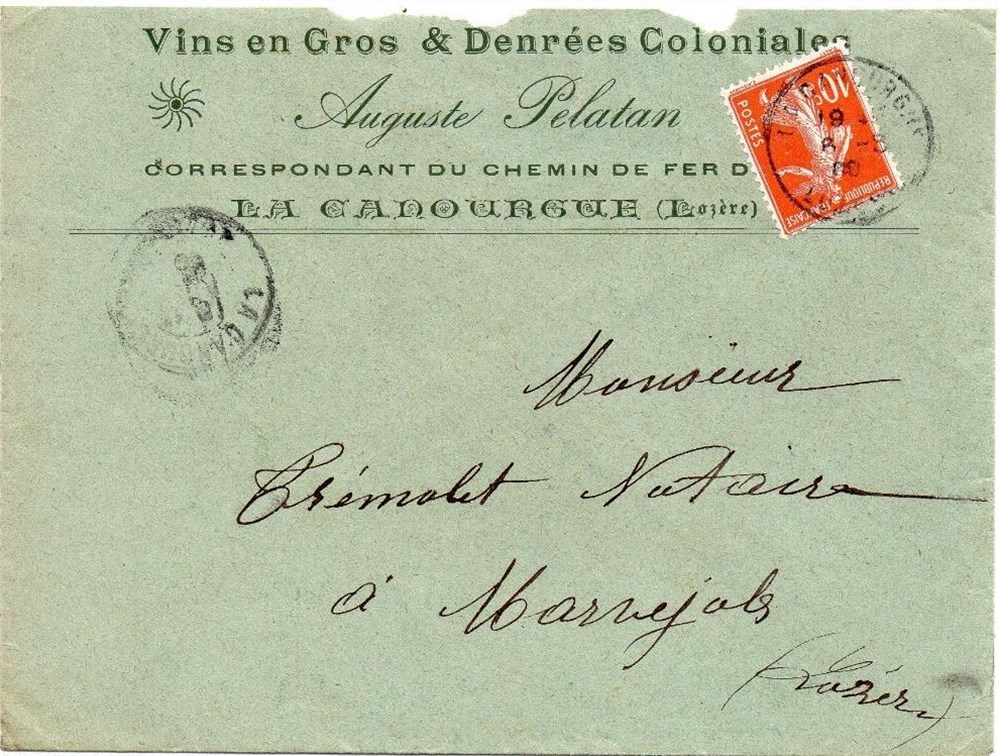 Vins en Gros & Denrées Coloniales
Auguste Pelatan
CORRESPONDANT DU CHEMIN DE FER D
LA CANOURGUE (Lozère)
10c
POSTES
REPUBLIQUE FRANÇAISE
LA CANOURGUE
19
LA CANOU
Monsieur
Trémolet Notaire
à Marvejols
(Lozère)